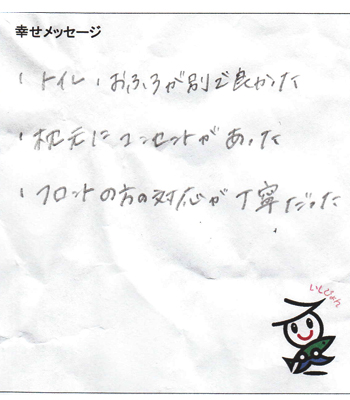 幸せメッセージ
・トイレ・おふろが別で良かった
・枕元にコンセントがあった
・フロントの方の対応が丁寧だった